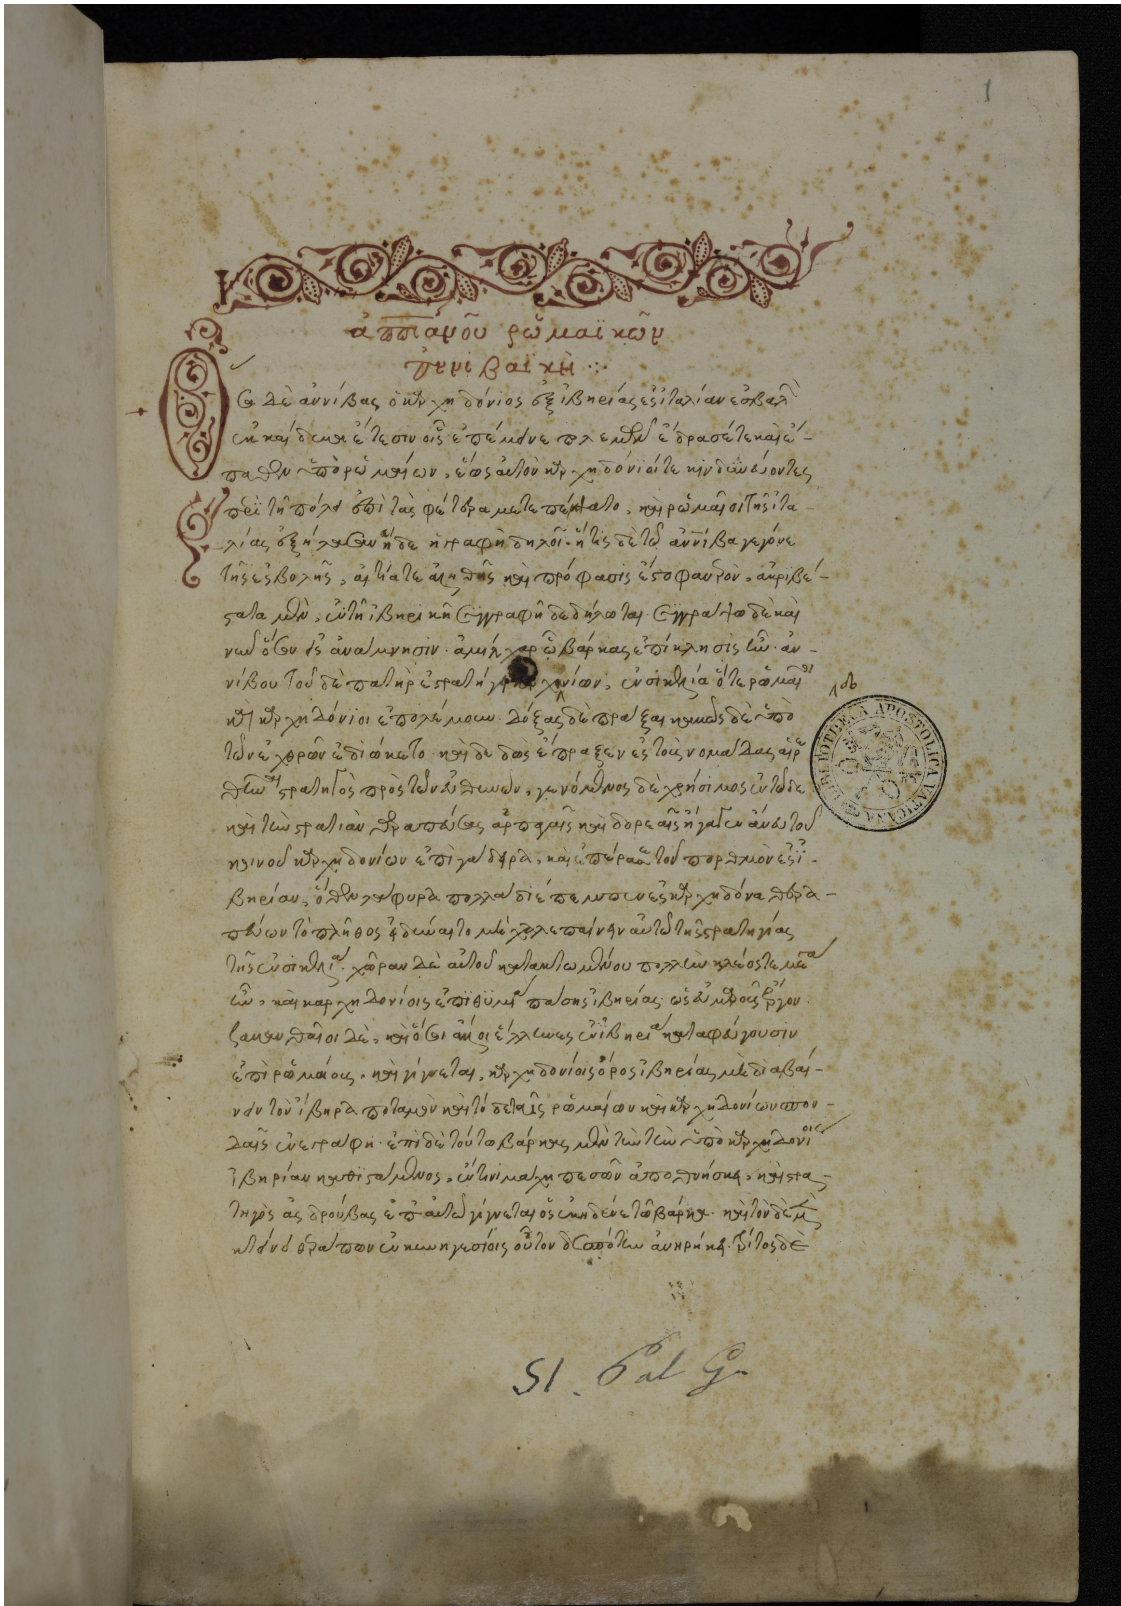 1
ἀππιανοῦ ῥωμαϊκῶν
ἀννιβαϊκὴ
Ὅσα δὲ ἀννίβας ὁ καρχηδόνιος ἐξ ἰβηρίας ἐς ἰταλίαν ἐσβαλὼν
ἑκκαίδεκα ἔτεσιν οἷς ἐπέμεινε πολεμῶν ἔδρασέ τε καὶ ἔ-
παθεν ὑπὸ ῥωμαίων, ἕως αὐτὸν καρχηδόνιοί τε κινδυνεύοντες
περὶ τῇ πόλει ἐπὶ τὰ σφέτερα μετεπέμψαντο, καὶ ῥωμαῖοι τῆς ἰτα-
λίας ἐξήλασαν ἥδε ἡ γραφὴ δηλοῖ. ἥτις δὲ τῷ ἀννίβᾳ γέγονε
τῆς ἐσβολῆς, αἰτία τε ἀληθὴς καὶ πρόφασις ἐς τὸ φανερὸν, ἀκριβέ-
στατα μὲν, ἐν τῇ ἰβηρικῇ συγγραφῇ δεδήλωται. συγγράψω δὲ καὶ
νῦν ὅσον εἰς ἀνάμνησιν. ἀμίλχαρ ᾧ βάρκας ἐπίκλησις ἦν. ἀν-
νίβου τοῦδε πατὴρ ἐστρατήγει καρχηδονίων, ἐν σικελίᾳ ὅτε ῥωμαῖοι
καὶ καρχηδόνιοι ἐπολέμουν. δόξας δὲ πρᾶξαι κακῶς δὲ ὑπὸ
τῶν ἐχθρῶν ἐδιώκετο. καὶ δεδιὼς ἔπραξεν ἐς τοὺς νομάδας αἱρε
θῆναι στρατηγὸς πρὸ τῶν εὐθυνῶν, γενόμενος δὲ χρήσιμος ἐν τῷδε
καὶ τὴν στρατιὰν θεραπεύσας ἁρπαγαῖς καὶ δωρεαῖς ἤγαγεν ἄνευ τοῦ
κοινοῦ καρχηδονίων ἐπὶ γάδειρα, καὶ ἐπέρασε τὸν πορθμὸν ἐς ἰ-
βηρίαν, ὅθεν λάφυρα πολλὰ διέπεμπεν ἐς καρχηδόνα θερα-
πεύων τὸ πλῆθος εἰ δύναιτο μὴ χαλεπαίνειν αὐτῷ τῆς στρατηγίας
τῆς ἐν σικελίᾳ. χώραν δὲ αὐτοῦ κατακτωμένου πολλὴν κλέος τε μέγα
ἦν, καὶ καρχηδονίοις ἐπιθυμία πάσης ἰβηρίας ὡς εὐμαροῦς ἔργου.
ζακανθαῖοι δὲ, καὶ ὅσοι ἄλλοι ἕλληνες ἐν ἰβηρίᾳ καταφεύγουσιν
ἐπὶ ῥωμαίους. καὶ γίγνεται, καρχηδονίοις ὅρος ἰβηρίας μὴ διαβαί-
νειν τὸν ἴβηρα ποταμὸν καὶ τόδε ταῖς ῥωμαίων καὶ καρχηδονίων σπον-
δαῖς ἐνεγράφη. ἐπὶ δὲ τούτῳ βάρκας μὲν τὴν ὑπὸ καρχηδονίοις
ἰβηρίαν καθιστάμενος, ἔν τινι μάχῃ πεσὼν ἀποθνήσκει. καὶ στρα-
τηγὸς ἀσδρούβας ἐπ' αὐτῷ γίγνεται ὃς ἐκήδευε τῷ βάρκᾳ. καὶ τόνδε μὲν
κτείνει θεράπων ἐν κυνηγεσίοις οὗ τὸν δεσπότην ἀνῃρήκει. τρίτος δὲ
BIBLIOTHECA APOSTOLICA VATICANA
51. Pal Gr